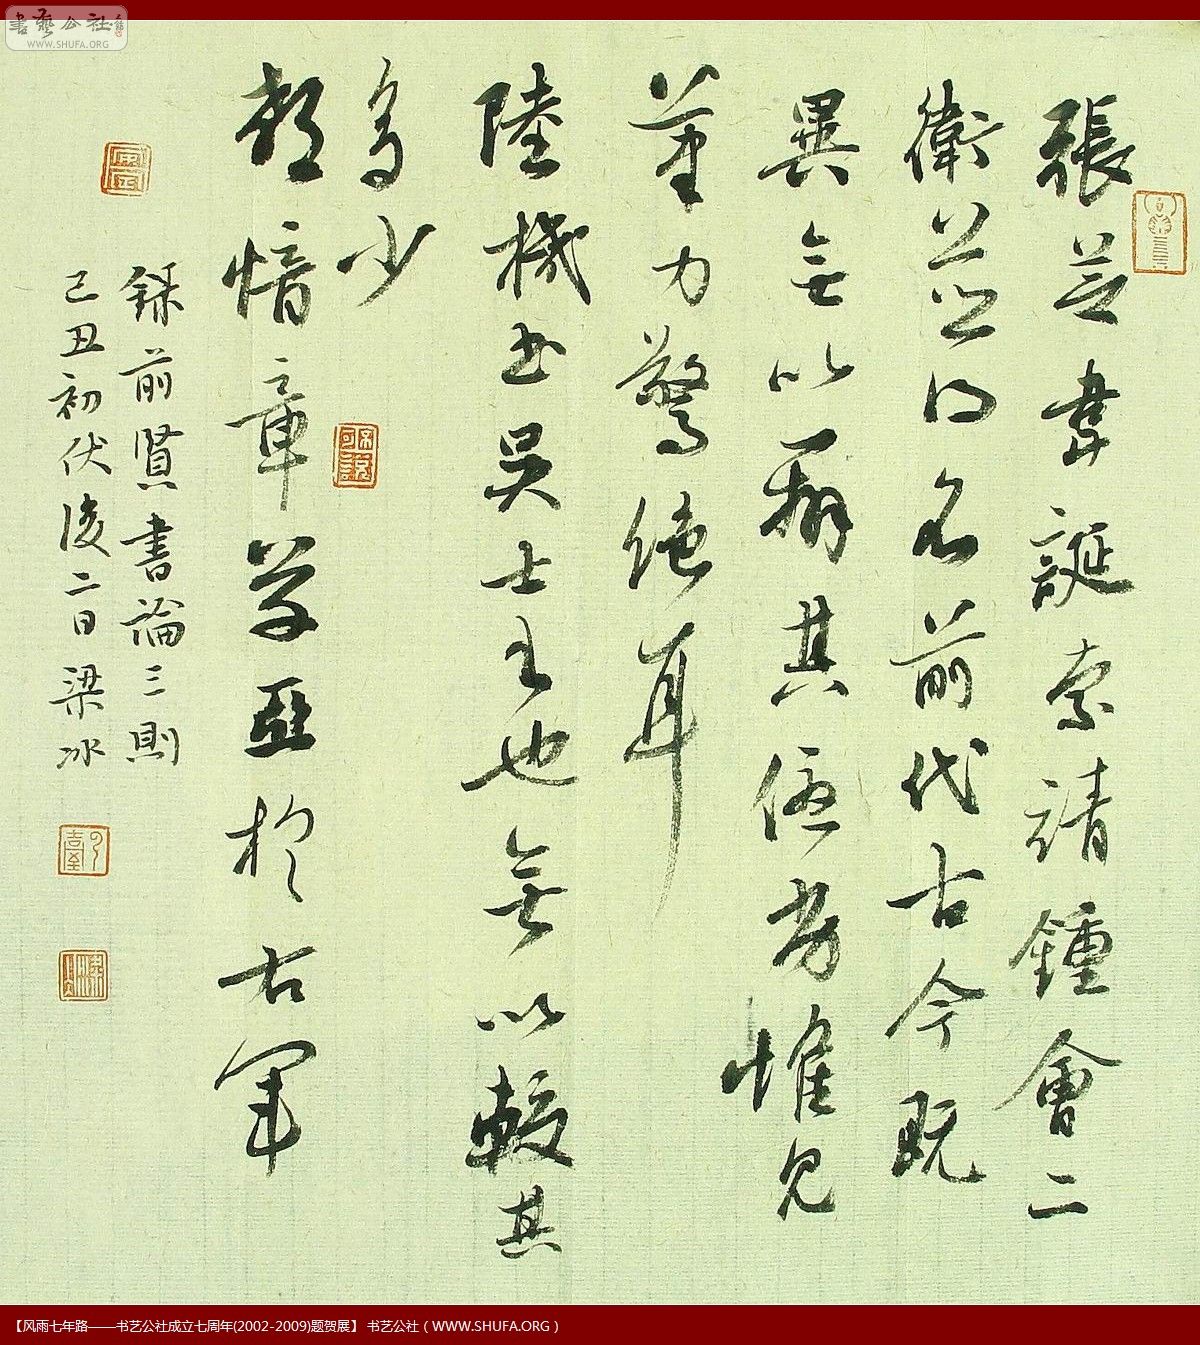 張芝韋誕索靖鍾會二
衛並得名前代古今既
異無以辨其優劣惟見
筆力驚絕耳
陸機書吳士書也無以較其
多少
郗愔章草亞於右軍
錄前賢書論三則
己丑初伏後二日梁冰
書艺公社
WWW.SHUFA.ORG
【风雨七年路——书艺公社成立七周年(2002-2009)题贺展】 书艺公社（WWW.SHUFA.ORG）